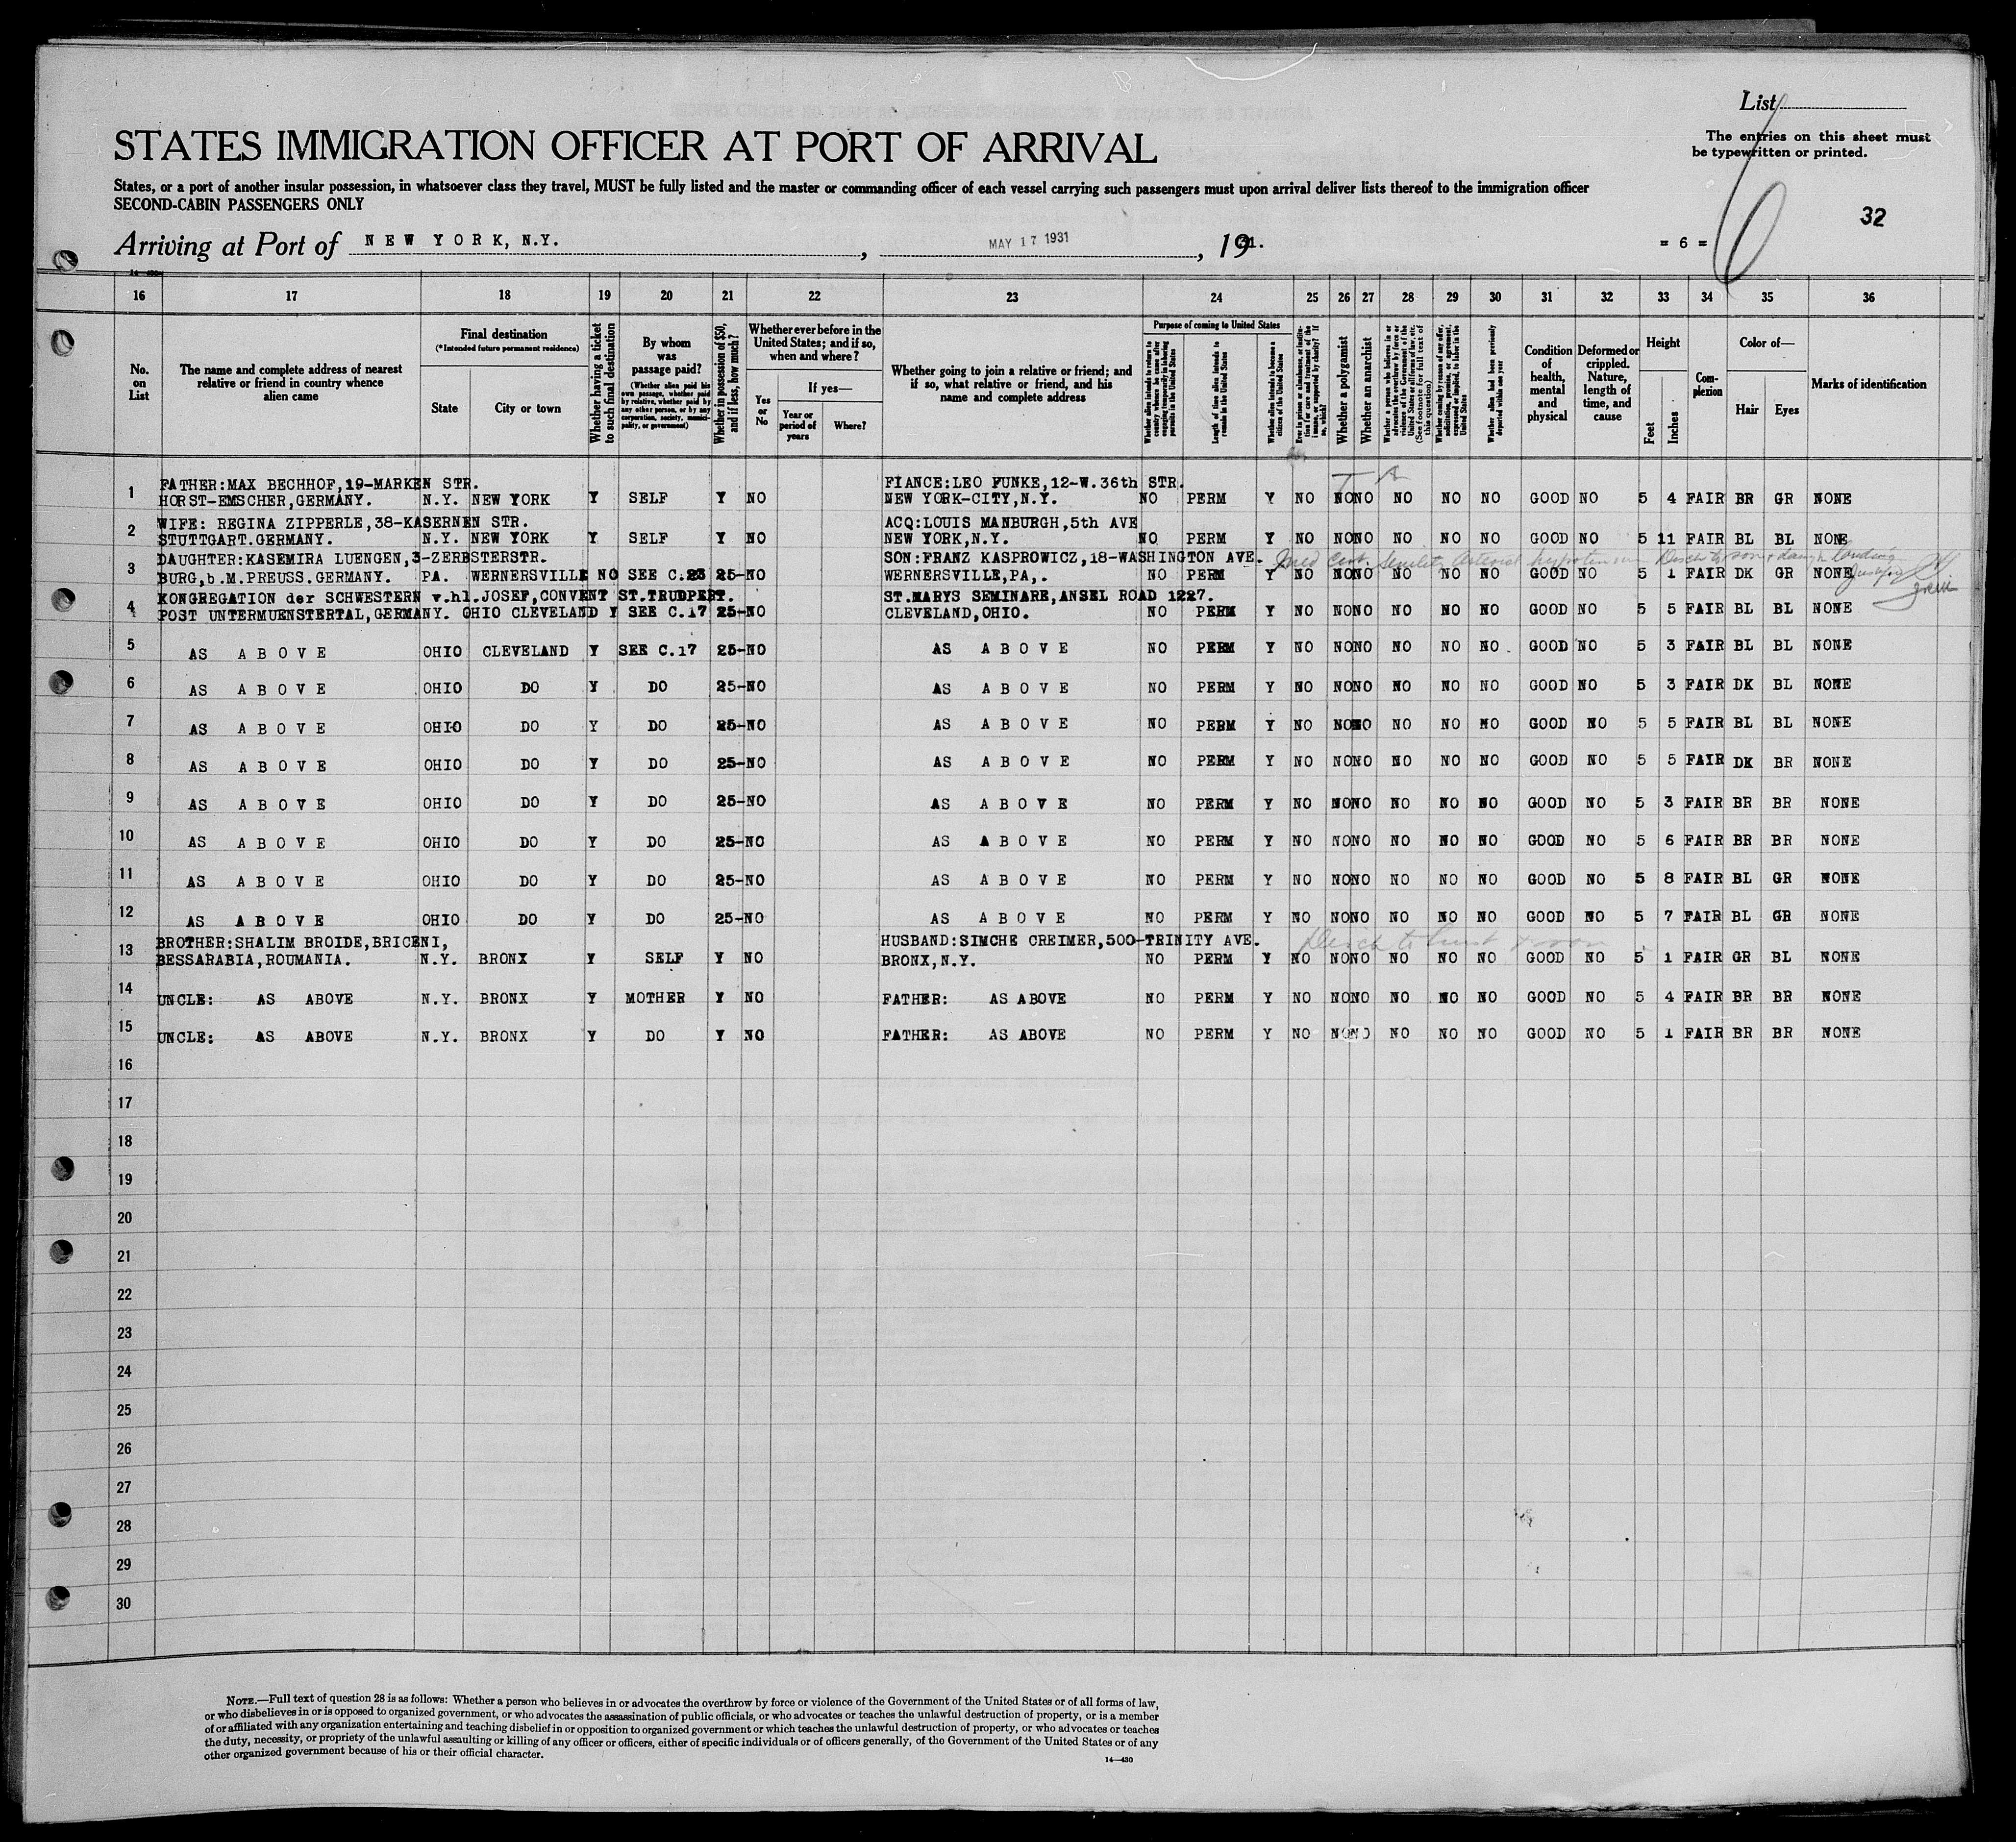 List
The entries on this sheet must
be typewritten or printed.
STATES IMMIGRATION OFFICER AT PORT OF ARRIVAL
States, or a port of another insular possession, in whatsoever class they travel, MUST be fully listed and the master or commanding officer of each vessel carrying such passengers must upon arrival deliver lists thereof to the immigration officer
SECOND-CABIN PASSENGERS ONLY
6
32
Arriving at Port of NEW YORK, N.Y., MAY 17 1931, 1931.
= 6 =
16 17 18 19 20 21 22 23 24 25 26 27 28 29 30 31 32 33 34 35 36
No. on List
The name and complete address of nearest relative or friend in country whence alien came
Final destination
(*Intended future permanent residence)
State
City or town
Whether having a ticket to such final destination
By whom was passage paid?
(Whether alien paid his own passage, whether paid by relative, whether paid by any other person, or by any corporation, society, municipality, or government)
Whether in possession of $50, and if less, how much?
Whether ever before in the United States; and if so, when and where?
Yes or No
If yes—
Year or period of years
Where?
Whether going to join a relative or friend; and if so, what relative or friend, and his name and complete address
Purpose of coming to United States
Whether alien intends to return to country whence he came after engaging temporarily in laboring pursuits in the United States
Length of time alien intends to remain in the United States
Whether alien intends to become a citizen of the United States
Ever in prison or almshouse, or institution for care and treatment of the insane, or supported by charity? If so, which?
Whether a polygamist
Whether an anarchist
Whether a person who believes in or advocates the overthrow by force or violence of the Government of the United States or all forms of law, etc. (See footnote for full text of this question)
Whether coming by reason of any offer, solicitation, promise, or agreement, expressed or implied, to labor in the United States
Whether alien had been previously deported within one year
Condition of health, mental and physical
Deformed or crippled. Nature, length of time, and cause
Height
Feet
Inches
Complexion
Color of—
Hair
Eyes
Marks of identification
FATHER:MAX BECHHOF,19-MARKEN STR. FIANCE:LEO FUNKE,12-W.36th STR.
1 HORST-EMSCHER,GERMANY. N.Y. NEW YORK Y SELF Y NO NEW YORK-CITY,N.Y. NO PERM Y NO NO NO NO NO NO GOOD NO 5 4 FAIR BR GR NONE
WIFE: REGINA ZIPPERLE,38-KASERNEN STR. ACQ:LOUIS MANBURGH,5th AVE
2 STUTTGART.GERMANY. N.Y. NEW YORK Y SELF Y NO NEW YORK,N.Y. NO PERM Y NO NO NO NO NO NO GOOD NO 5 11 FAIR BL BL NONE
DAUGHTER:KASEMIRA LUENGEN,3-ZERBSTERSTR. SON:FRANZ KASPROWICZ,18-WASHINGTON AVE. Med Cert. Senility arterial hypertension
3 BURG,b.M.PREUSS.GERMANY. PA. WERNERSVILLE NO SEE C.23 25- NO WERNERSVILLE,PA,. NO PERM Y NO NO NO NO NO NO GOOD NO 5 1 FAIR DK GR NONE
KONGREGATION der SCHWESTERN v.hl.JOSEF,CONVENT ST.TRUDPERT. ST.MARYS SEMINARE,ANSEL ROAD 1227.
4 POST UNTERMUENSTERTAL,GERMANY. OHIO CLEVELAND Y SEE C.17 25- NO CLEVELAND,OHIO. NO PERM Y NO NO NO NO NO NO GOOD NO 5 5 FAIR BL BL NONE
5 AS ABOVE OHIO CLEVELAND Y SEE C.17 25- NO AS ABOVE NO PERM Y NO NO NO NO NO NO GOOD NO 5 3 FAIR BL BL NONE
6 AS ABOVE OHIO DO Y DO 25- NO AS ABOVE NO PERM Y NO NO NO NO NO NO GOOD NO 5 3 FAIR DK BL NONE
7 AS ABOVE OHIO DO Y DO 25- NO AS ABOVE NO PERM Y NO NO NO NO NO NO GOOD NO 5 5 FAIR BL BL NONE
8 AS ABOVE OHIO DO Y DO 25- NO AS ABOVE NO PERM Y NO NO NO NO NO NO GOOD NO 5 5 FAIR DK BR NONE
9 AS ABOVE OHIO DO Y DO 25- NO AS ABOVE NO PERM Y NO NO NO NO NO NO GOOD NO 5 3 FAIR BR BR NONE
10 AS ABOVE OHIO DO Y DO 25- NO AS ABOVE NO PERM Y NO NO NO NO NO NO GOOD NO 5 6 FAIR BR BR NONE
11 AS ABOVE OHIO DO Y DO 25- NO AS ABOVE NO PERM Y NO NO NO NO NO NO GOOD NO 5 8 FAIR BL GR NONE
12 AS ABOVE OHIO DO Y DO 25- NO AS ABOVE NO PERM Y NO NO NO NO NO NO GOOD NO 5 7 FAIR BL GR NONE
BROTHER:SHALIM BROIDE,BRICENI, HUSBAND:SIMCHE CREIMER,500-TRINITY AVE.
13 BESSARABIA,ROUMANIA. N.Y. BRONX Y SELF Y NO BRONX,N.Y. NO PERM Y NO NO NO NO NO NO GOOD NO 5 1 FAIR GR BL NONE
14 UNCLE: AS ABOVE N.Y. BRONX Y MOTHER Y NO FATHER: AS ABOVE NO PERM Y NO NO NO NO NO NO GOOD NO 5 4 FAIR BR BR NONE
15 UNCLE: AS ABOVE N.Y. BRONX Y DO Y NO FATHER: AS ABOVE NO PERM Y NO NO NO NO NO NO GOOD NO 5 1 FAIR BR BR NONE
16
17
18
19
20
21
22
23
24
25
26
27
28
29
30
NOTE.—Full text of question 28 is as follows: Whether a person who believes in or advocates the overthrow by force or violence of the Government of the United States or of all forms of law,
or who disbelieves in or is opposed to organized government, or who advocates the assassination of public officials, or who advocates or teaches the unlawful destruction of property, or is a member
of or affiliated with any organization entertaining and teaching disbelief in or opposition to organized government or which teaches the unlawful destruction of property, or who advocates or teaches
the duty, necessity, or propriety of the unlawful assaulting or killing of any officer or officers, either of specific individuals or of officers generally, of the Government of the United States or of any
other organized government because of his or their official character.
14—430